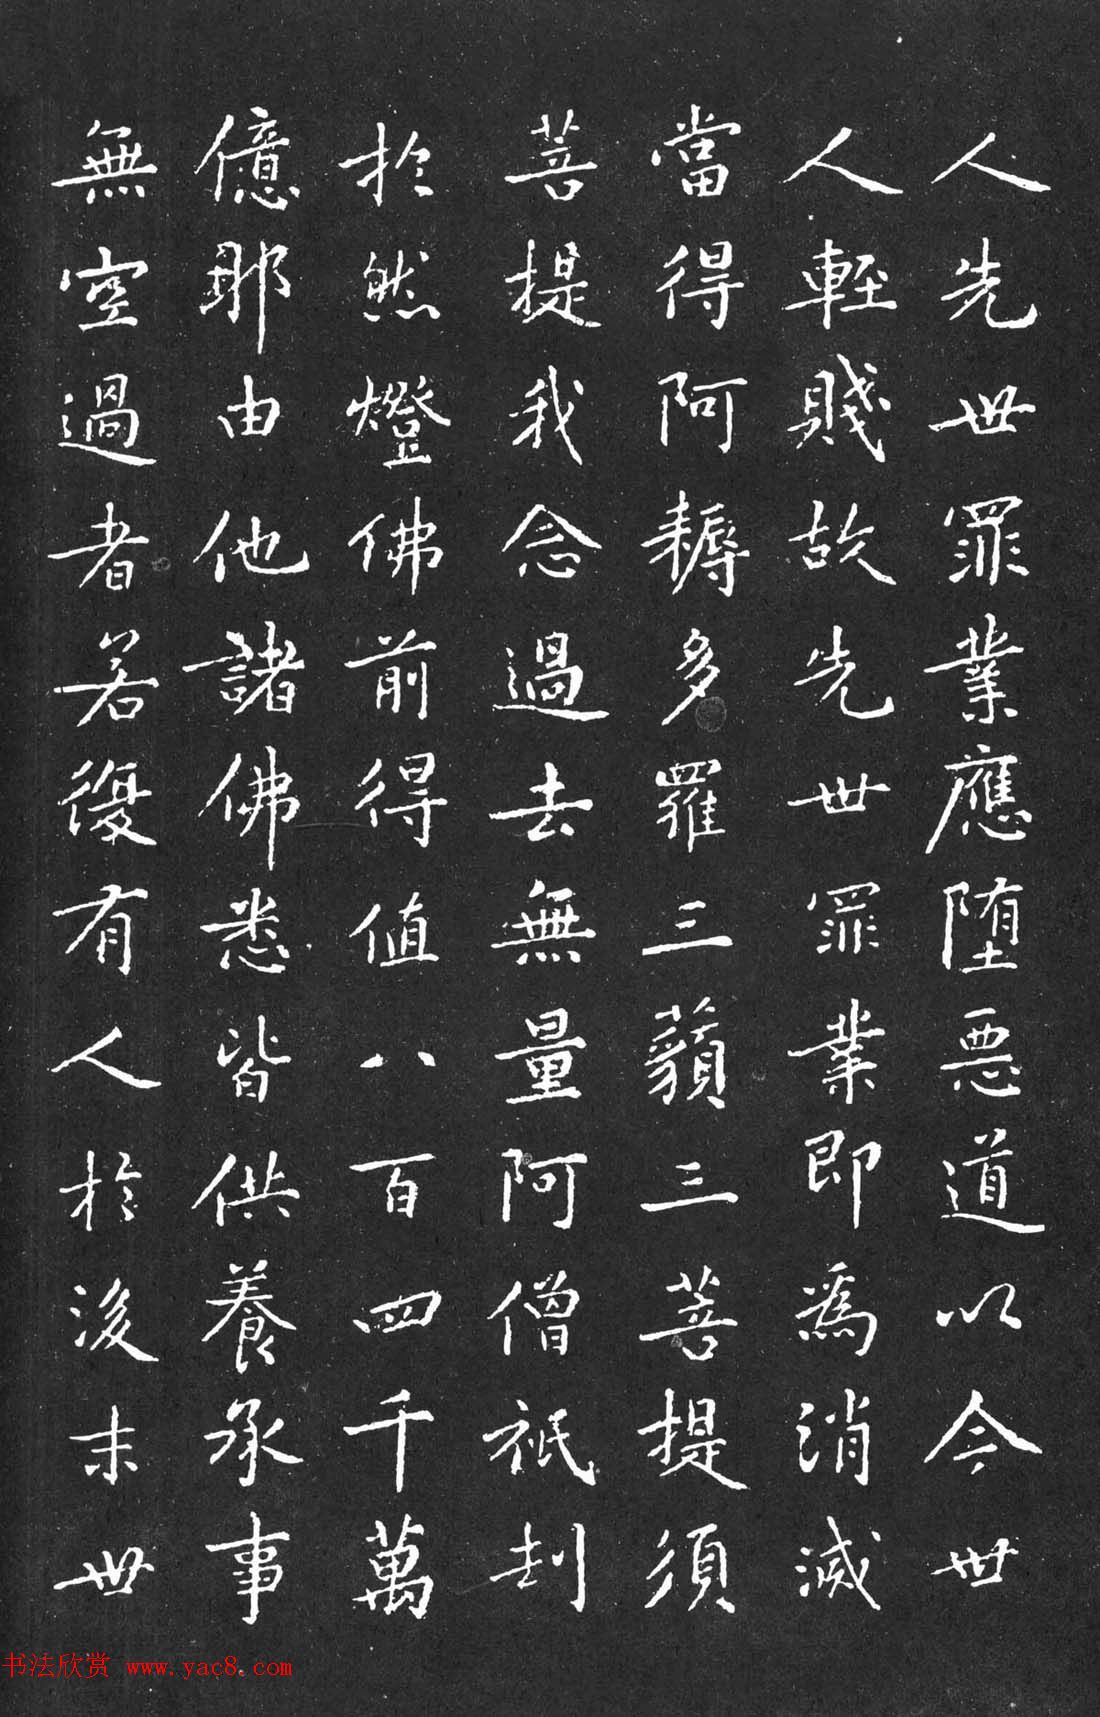 人先世罪業應堕惡道以今世
人輕賤故先世罪業即為消滅
當得阿耨多羅三藐三菩提須
菩提我念過去無量阿僧祇刦
於然燈佛前得值八百四千萬
億那由他諸佛悉皆供養承事
無空過者若復有人於後末世
书法欣赏 www.yac8.com